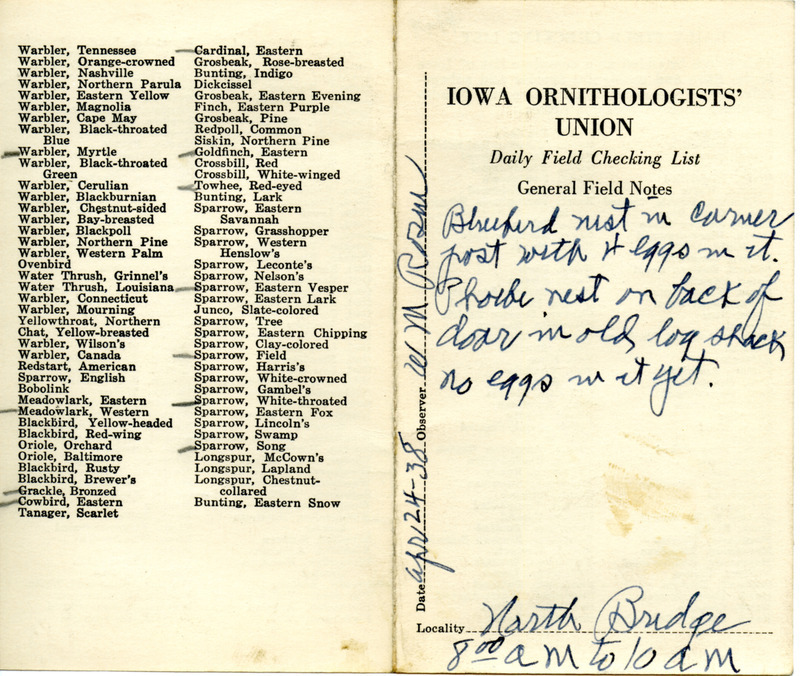 Warbler, Tennessee
Warbler, Orange-crowned
Warbler, Nashville
Warbler, Northern Parula
Warbler, Eastern Yellow
Warbler, Magnolia
Warbler, Cape May
Warbler, Black-throated
Blue
Warbler, Myrtle
Warbler, Black-throated
Green
Warbler, Cerulian
Warbler, Blackburnian
Warbler, Chestnut-sided
Warbler, Bay-breasted
Warbler, Blackpoll
Warbler, Northern Pine
Warbler, Western Palm
Ovenbird
Water Thrush, Grinnel's
Water Thrush, Louisiana
Warbler, Connecticut
Warbler, Mourning
Yellowthroat, Northern
Chat, Yellow-breasted
Warbler, Wilson's
Warbler, Canada
Redstart, American
Sparrow, English
Bobolink
Meadowlark, Eastern
Meadowlark, Western
Blackbird, Yellow-headed
Blackbird, Red-wing
Oriole, Orchard
Oriole, Baltimore
Blackbird, Rusty
Blackbird, Brewer's
Grackle, Bronzed
Cowbird, Eastern
Tanager, Scarlet
Cardinal, Eastern
Grosbeak, Rose-breasted
Bunting, Indigo
Dickcissel
Grosbeak, Eastern Evening
Finch, Eastern Purple
Grosbeak, Pine
Redpoll, Common
Siskin, Northern Pine
Goldfinch, Eastern
Crossbill, Red
Crossbill, White-winged
Towhee, Red-eyed
Bunting, Lark
Sparrow, Eastern
Savannah
Sparrow, Grasshopper
Sparrow, Western
Henslow's
Sparrow, Leconte's
Sparrow, Nelson's
Sparrow, Eastern Vesper
Sparrow, Eastern Lark
Junco, Slate-colored
Sparrow, Tree
Sparrow, Eastern Chipping
Sparrow, Clay-colored
Sparrow, Field
Sparrow, Harris's
Sparrow, White-crowned
Sparrow, Gambel's
Sparrow, White-throated
Sparrow, Eastern Fox
Sparrow, Lincoln's
Sparrow, Swamp
Sparrow, Song
Longspur, McCown's
Longspur, Lapland
Longspur, Chestnut-
collared
Bunting, Eastern Snow
IOWA ORNITHOLOGISTS'
UNION
Daily Field Checking List
General Field Notes
Bluebird nest in corner
post with 4 eggs in it.
Phoebe nest on back of
door in old log shack
no eggs in it yet.
Date Apr 24-38 Observer W M Rosen
Locality North Bridge
8 00 a m to 10 a m